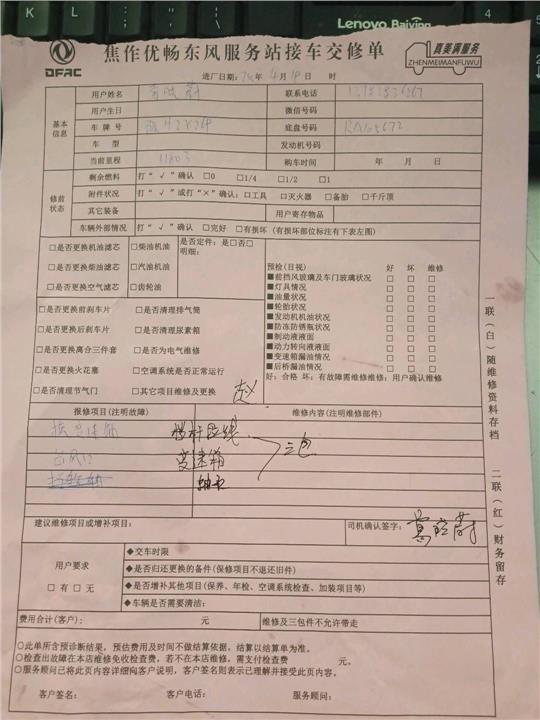 Lenovo Baiying
DFAC
焦作优畅东风服务站接车交修单
真美满服务
ZHENMEIMANFUWU
进厂日期: 年 4月 日 时
基本信息
用户姓名 联系电话
用户生日 微信号码
车牌号 底盘号码
车型 发动机号码
当前里程 11803 购车时间 年 月 日
修前状态
剩余燃料 打“√”确认 □0 □1/4 □1/2 □1
附件状况 打“√”或打“×”确认:□工具 □灭火器 □备胎 □千斤顶
其它装备 用户寄存物品
车辆外部情况 打“√”确认 □完好 □有损坏(有损坏部位标注有下表左图)
□是否更换机油滤芯 □柴油机油 是否定件:是□否□
□是否更换柴油滤芯 □汽油机油 明细:
□是否更换空气滤芯 □齿轮油
□是否更换前刹车片 □是否清理排气筒
□是否更换后刹车片 □是否清理尿素箱
□是否更换离合三件套 □是否为电气维修
□是否更换火花塞 □空调系统是否正常运行
□是否清理节气门 □其它项目维修及更换
预检(目视) 好 坏 维修
■前挡风玻璃及车门玻璃状况 □ □ □
■灯具情况 □ □ □
■油量状况 □ □ □
■轮胎状况 □ □ □
■发动机机油状况 □ □ □
■防冻防锈瓶状况 □ □ □
■制动液液面 □ □ □
■动力转向液液面 □ □ □
■变速箱漏油情况 □ □ □
■后桥漏油情况 □ □ □
好:合格 坏:有故障需维修维修:用户确认维修
赵
报修项目(注明故障) 维修内容(注明维修部件)
拉线
变速箱 三包
建议维修项目或增补项目: 司机确认签字:
用户要求
□有□无
◆交车时限
◆是否归还更换的备件(保修项目不退还旧件)
◆是否增补其他项目(保养、年检、空调系统检查、加装项目等)
◆车辆是否需要清洁:
费用合计(客户): 元 维修及三包件不允许带走
○此单所含预诊断结果,预估费用及时间不做结算依据,结算以结算单为准。
○检查出故障在本店维修免收检查费,若不在本店维修,需支付检查费 元。
○服务顾问已将此页内容详细向客户说明,客户签名则表示已理解并接受此页内容。
客户签名: 客户电话: 服务顾问:
一联(白)随维修资料存档
二联(红)财务留存